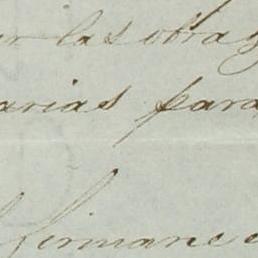 ar las obras
arias para
firmane